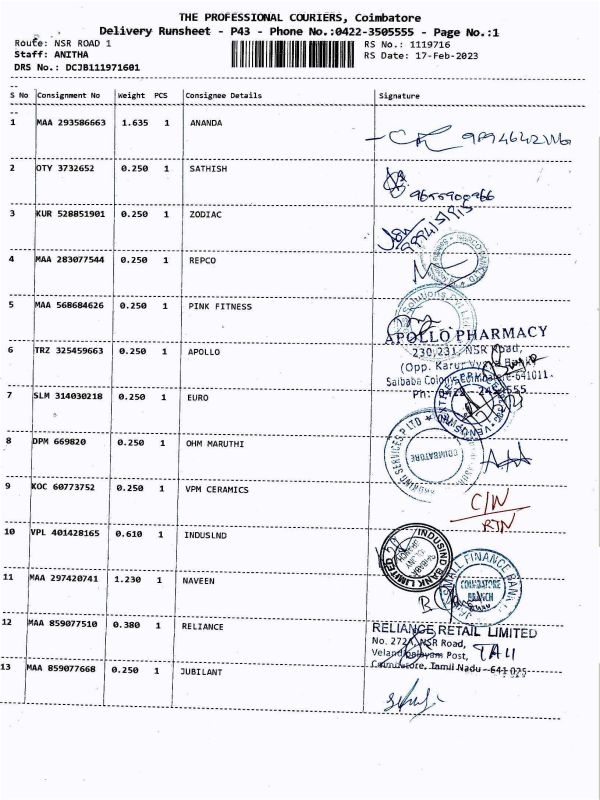 THE PROFESSIONAL COURIERS, Coimbatore
Delivery Runsheet - P43 - Phone No.:0422-3505555 - Page No.:1
Route: NSR ROAD 1 RS No.: 1119716
Staff: ANITHA RS Date: 17-Feb-2023
DRS No.: DCJB111971601
S No Consignment No Weight PCS Consignee Details Signature
1 MAA 293586663 1.635 1 ANANDA
2 OTY 3732652 0.250 1 SATHISH
3 KUR 528851901 0.250 1 ZODIAC
4 MAA 283077544 0.250 1 REPCO
5 MAA 568684626 0.250 1 PINK FITNESS
Solutions Pvt Ltd
APOLLO PHARMACY
6 TRZ 325459663 0.250 1 APOLLO 230,231, NSR Road,
(Opp. Karur Vysya Bank)
Saibaba Colony, Coimbatore-641011.
7 SLM 314030218 0.250 1 EURO
8 DPM 669820 0.250 1 OHM MARUTHI
SERVICES P LTD
COIMBATORE
9 KOC 60773752 0.250 1 VPM CERAMICS C/N
RTN
10 VPL 401428165 0.610 1 INDUSLND
INDUSIND BANK LIMITED
11 MAA 297420741 1.230 1 NAVEEN
SMALL FINANCE BANK
COIMBATORE
BRANCH
12 MAA 859077510 0.380 1 RELIANCE RELIANCE RETAIL LIMITED
No. 272A, NSR Road,
Velandipalayam Post,
Coimbatore, Tamil Nadu - 641 025
13 MAA 859077668 0.250 1 JUBILANT